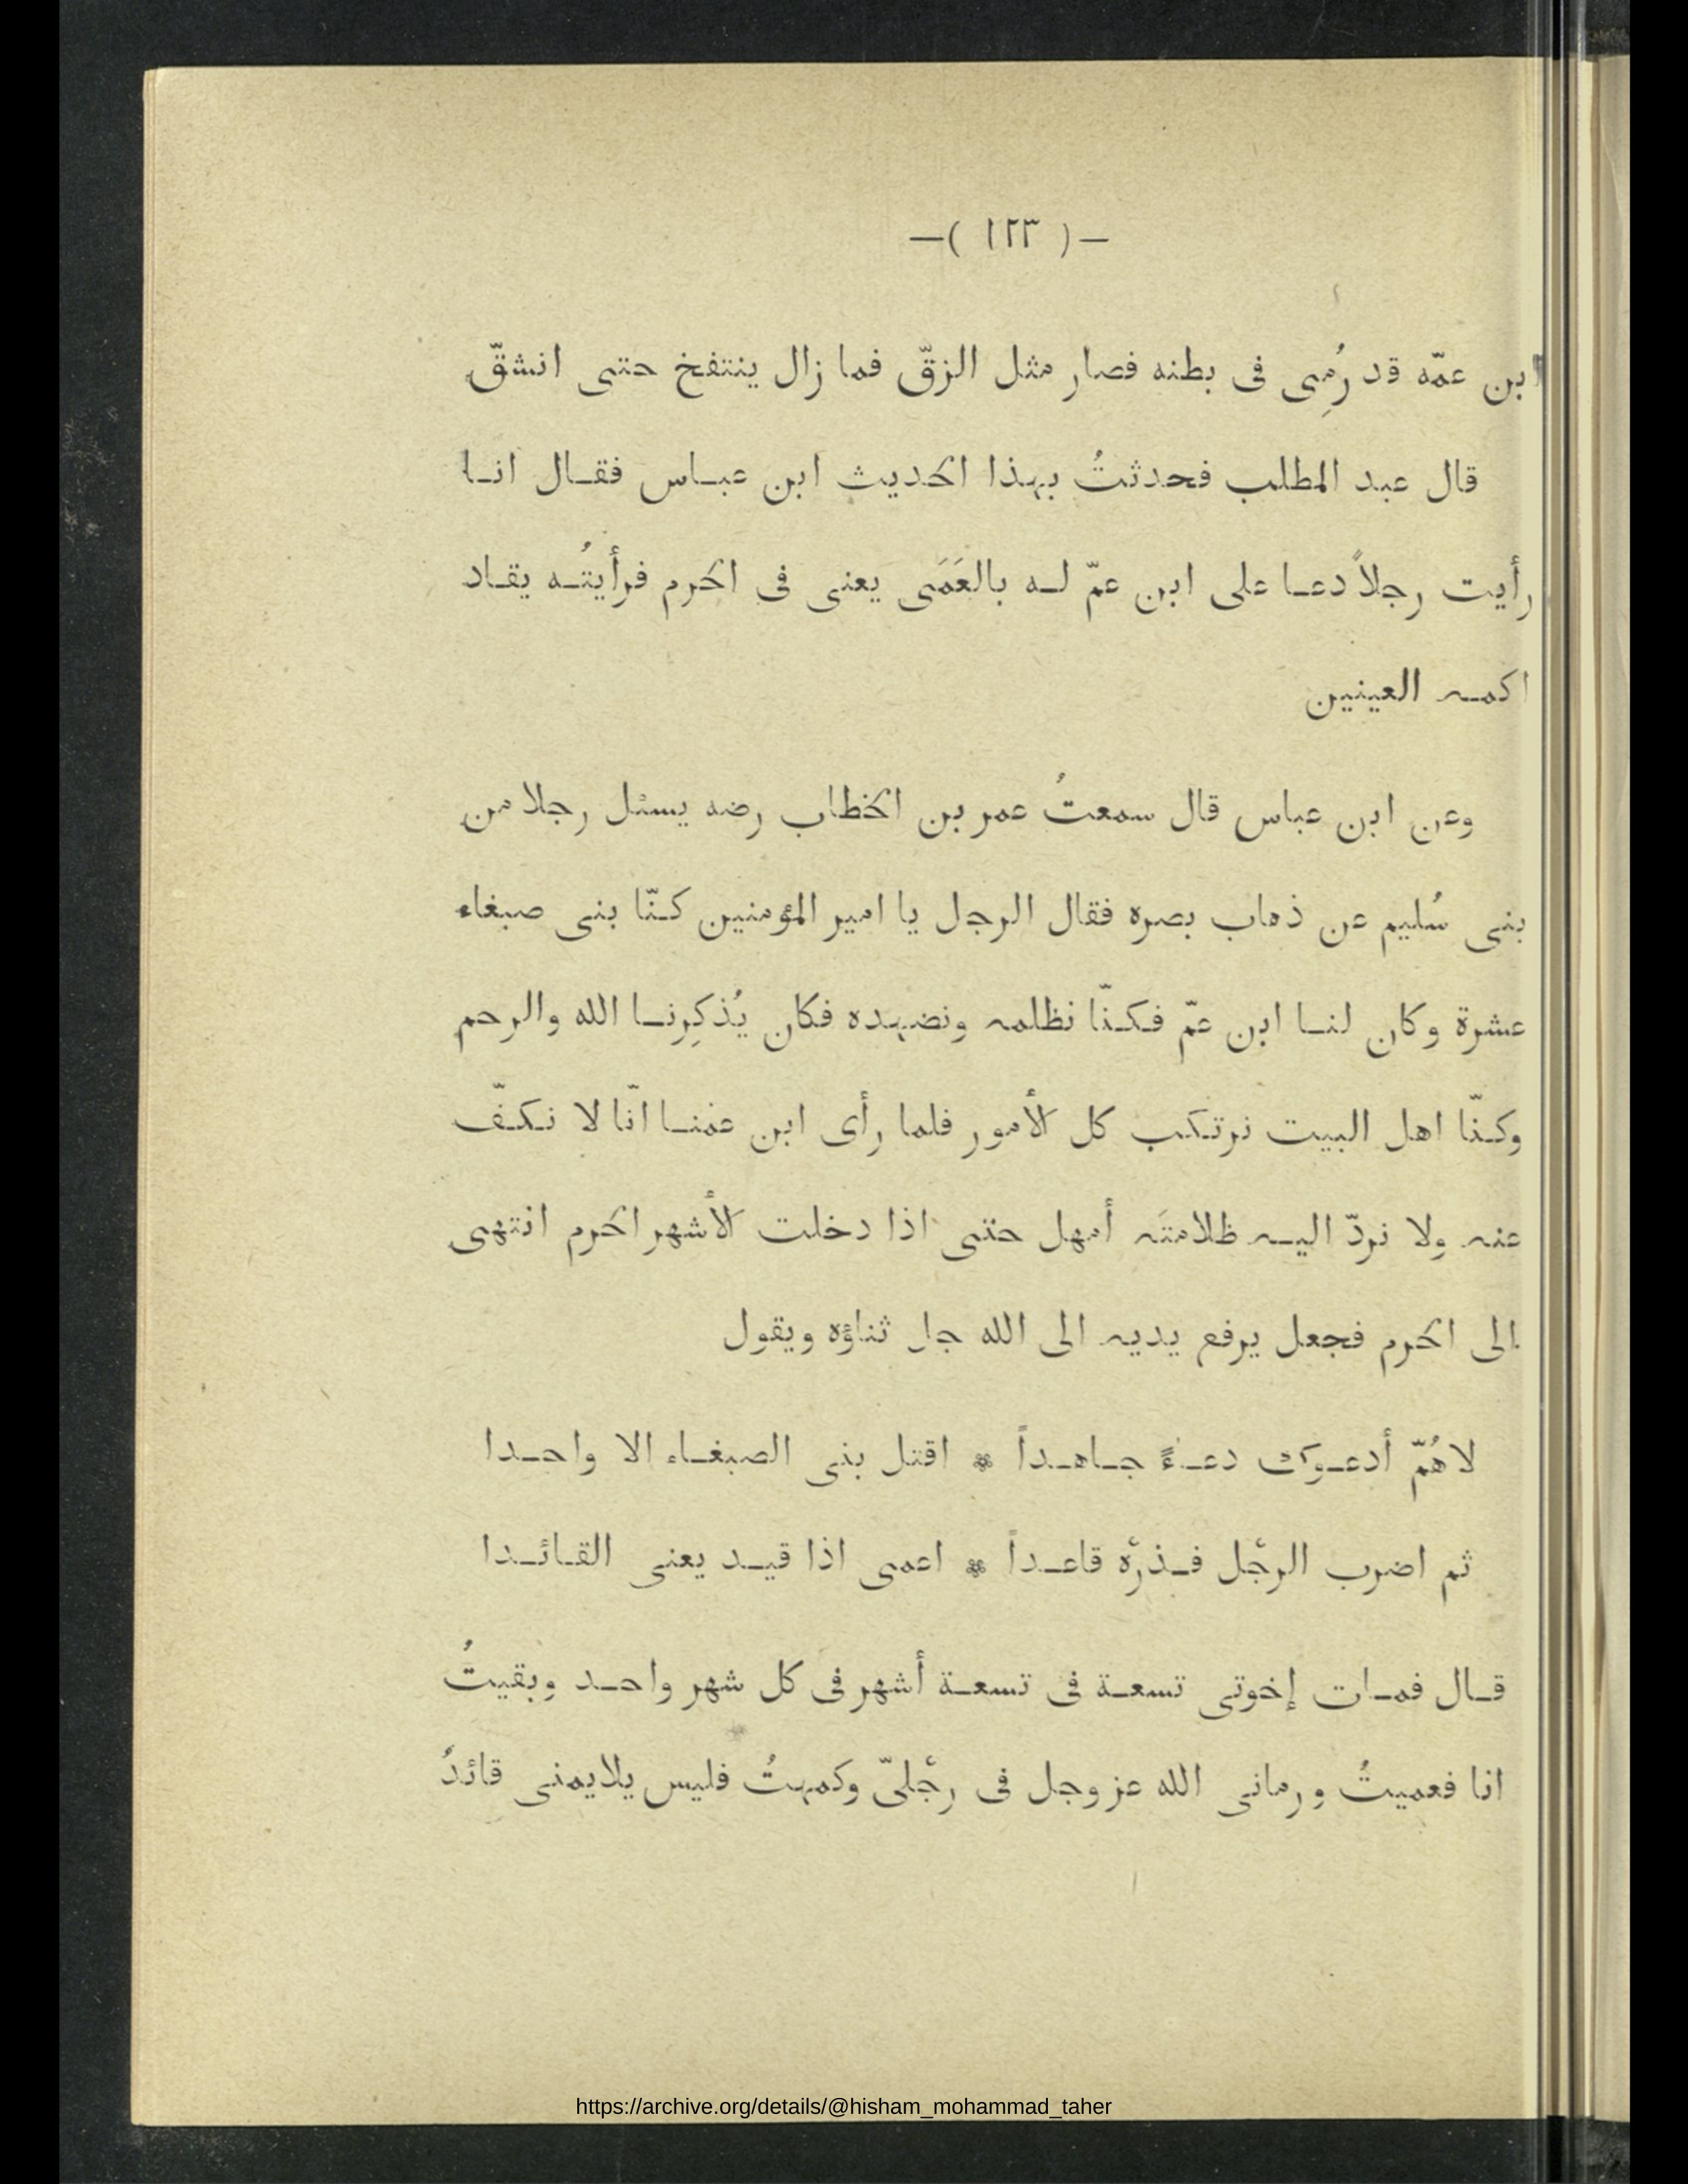 —( ١٢٣ )—
ابن عمّه قد رُمِى فى بطنه فصار مثل الزقّ فما زال ينتفخ حتى انشقّ
قال عبد المطلب فحدثتُ بهذا الحديث ابن عباس فقال انا
رأيت رجلاً دعا على ابن عمّ له بالعَمَى يعنى فى الحرم فرأيتُه يقاد
اكمه العينين
وعن ابن عباس قال سمعتُ عمر بن الخطاب رضه يسئل رجلا من
بنى سُليم عن ذهاب بصره فقال الرجل يا امير المؤمنين كنّا بنى صبغاء
عشرة وكان لنا ابن عمّ فكنّا نظلمه ونضهده فكان يُذكِرنا الله والرحم
وكنّا اهل البيت نرتكب كل الأمور فلما رأى ابن عمنا انّا لا نكفّ
عنه ولا نردّ اليه ظلامتَه أمهل حتى اذا دخلت الأشهر الحرم انتهى
الى الحرم فجعل يرفع يديه الى الله جل ثناؤه ويقول
لاهُمّ أدعوك دعاءً جاهداً * اقتل بنى الصبغاء الا واحدا
ثم اضرب الرجْل فذرْه قاعداً * اعمى اذا قيد يعنى القائدا
قال فمات إخوتى تسعة فى تسعة أشهر فى كل شهر واحد وبقيتُ
انا فعميتُ ورمانى الله عز وجل فى رجْلىّ وكمهتُ فليس يلايمنى قائدُ
https://archive.org/details/@hisham_mohammad_taher